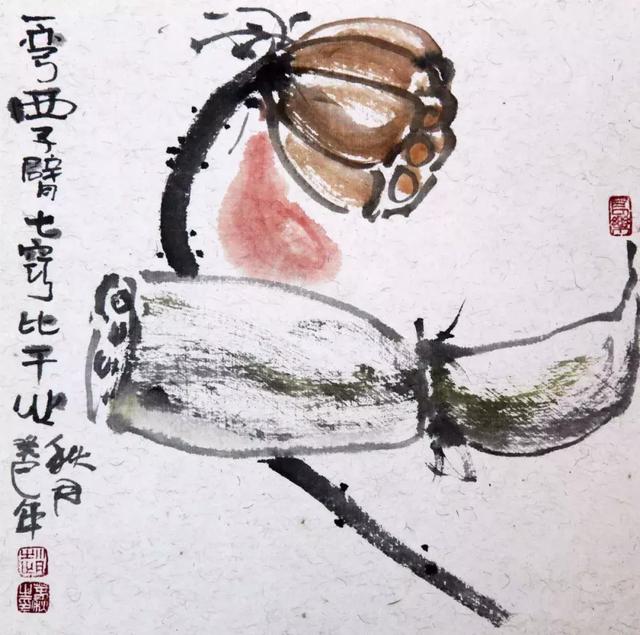 一弯西子臂七窍比干心
秋月
癸巳年